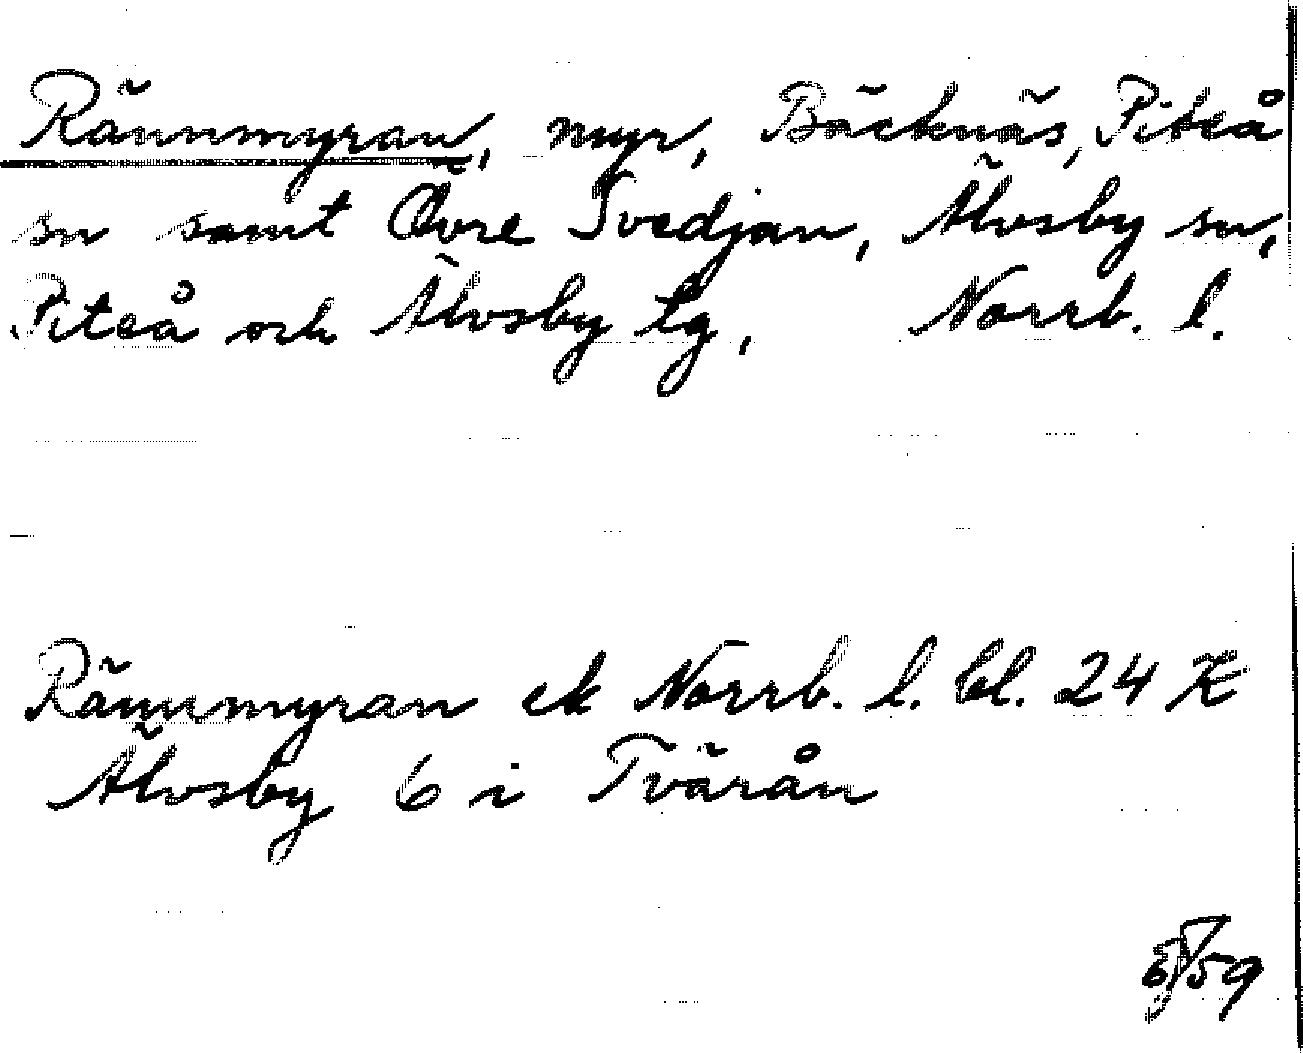 Rännmyran, myr, Bäcknäs, Piteå
sn samt Övre Tvedjan, Älvsby sn,
Piteå och Älvsby tg, Norrb. l.
Rännmyran ek Norrb. l. bl. 24 K
Älvsby 6 i Tvärån